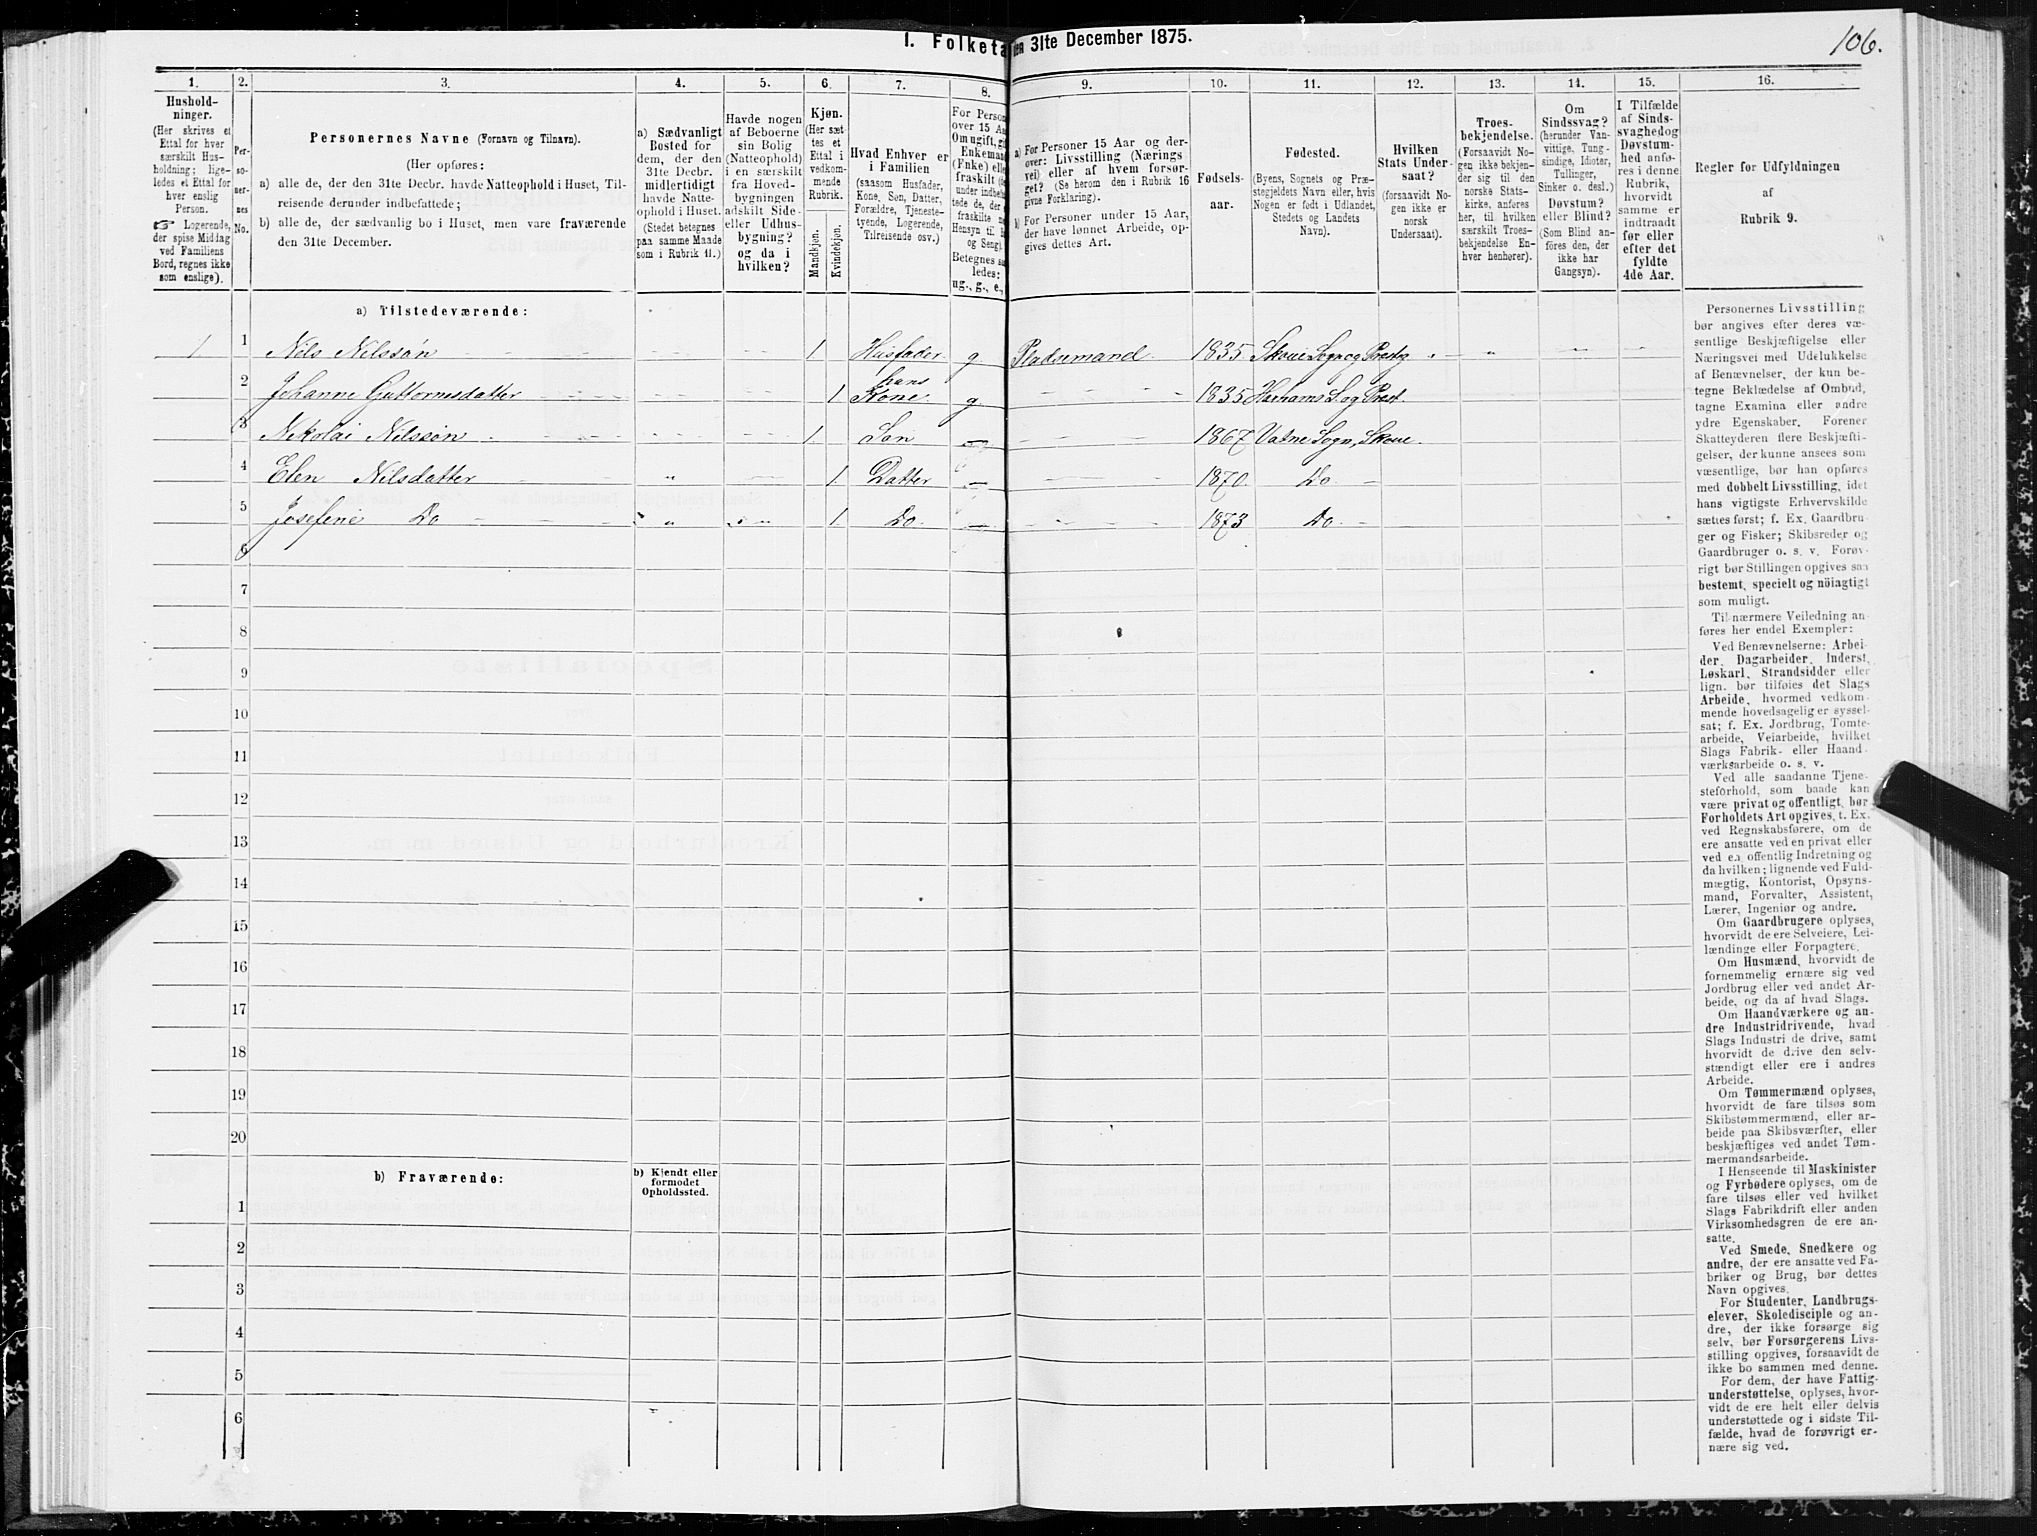 106.
I. Folketa
den 31te December 1875.
1.
Hushold-
ninger.
(Her skrives et
Ettal for hver
særskilt Hus-
holdning; lige-
ledes et Ettal for
hver enslig
Person.
☞ Logerende,
der spise Middag
ved Familiens
Bord, regnes ikke
som enslige).
2.
Per-
so-
ner-
nes
No.
3.
Personernes Navne (Fornavn og Tilnavn).
(Her opføres:
a) alle de, der den 31te Decbr. havde Natteophold i Huset, Til-
reisende derunder indbefattede;
b) alle de, der sædvanlig bo i Huset, men vare fraværende
den 31te December.
4.
a) Sædvanligt
Bosted for
dem, der den
31te Decbr.
midlertidigt
havde Natte-
ophold i Huset.
(Stedet betegnes
paa samme Maade
som i Rubrik 11.)
5.
Havde nogen
af Beboerne
sin Bolig
(Natteophold)
i en særskilt
fra Hoved-
bygningen
adskilt Side-
eller Udhus-
bygning?
og da i
hvilken?
6.
Kjøn.
(Her sæt-
tes et
Ettal i
vedkom-
mende
Rubrik.
Mandkjøn.
Kvindekjøn.
7.
Hvad Enhver er
i Familien
(saasom Husfader,
Kone, Søn, Datter,
Forældre, Tjeneste-
tyende, Logerende,
Tilreisende osv.)
8.
For Person
over 15 Aa
Om ugift, gif
Enkemand
(Enke) elle
fraskilt
under indbe
tede de,
fraskilte
Hensyn til
og Seng).
Betegnes saa-
ledes:
ug., g., e.,
9.
a) For Personer 15 Aar og der-
over: Livsstilling (Nærings
vei) eller af hvem forsør-
get? (Se herom den i Rubrik 16
givne Forklaring).
b) For Personer under 15 Aar,
der have lønnet Arbeide, op-
gives dettes Art.
10.
Fødsels-
aar.
11.
Fødested.
(Byens, Sognets og Præ-
stegjeldets Navn eller, hvis
Nogen er født i Udlandet,
Stedets og Landets
Navn).
12.
Hvilken
Stats Under-
saat?
(forsaavidt No-
gen ikke er
norsk
Undersaat).
13.
Troes-
bekjendelse.
(Forsaavidt No-
gen ikke bekjen-
der sig til den
norske Stats-
kirke, anføres
her, til hvilken
særskilt Troes-
bekjendelse En-
hver henhører).
14.
Om
Sindssvag?
(herunder Van-
vittige, Tung-
sindige, Idioter,
Tullinger,
Sinker o. desl.)
Døvstum?
eller Blind?
(Som Blind an-
føres den, der
ikke har
Gangsyn).
15.
I Tilfælde
af Sinds-
svaghed og
Døvstum-
hed anfø-
res i denne
Rubrik,
hvorvidt
samme er
indtraadt
før eller
efter det
fyldte
4de Aar.
16.
Regler for Udfyldningen
af
Rubrik 9.
a) Tilstedeværende:
1 1 Nils Nilssøn 1 Husfader g Pladsemand 1835 Skoue Sogn og Prestg
2 Johanne Guttormsdatter 1 hans Kone g 1835 Harhams S. og Prest.
3 Nikolai Nilssøn 1 Søn 1867 Vatne Sogn, Skoue
4 Elen Nilsdatter 1 Datter 1870 Do
5 Josefine Do 1 Do 1873 Do
6
7
8
9
10
11
12
13
14
15
16
17
18
19
20
b) Fraværende:
b) Kjendt eller
formodet
Opholdssted.
1
2
3
4
5
6
Personernes Livsstilling
bør angives efter deres væ-
sentlige Beskjæftigelse eller
Næringsvei med Udelukkelse
af Benævnelser, der kun be-
tegne Beklædelse af Ombud,
tagne Examina eller andre
ydre Egenskaber. Forener
Skatteyderen flere Beskjæfti-
gelser, der kunne ansees som
væsentlige, bør han opføres
med dobbelt Livsstilling, idet
hans vigtigste Erhvervskilde
sættes først; f. Ex. Gaardbru-
ger og Fisker; Skibsreder og
Gaardbruger o. s. v. Forøv-
rigt bør Stillingen opgives saa
bestemt, specielt og nöiagtigt
som muligt.
Til nærmere Veiledning an-
føres her endel Exempler:
Ved Benævnelserne: Arbei-
der, Dagarbeider, Inderst,
Løskarl, Strandsidder eller
lign. bør tilføies det Slags
Arbeide, hvormed vedkom-
mende hovedsagelig er syssel-
sat; f. Ex. Jordbrug, Tomte-
arbeide, Veiarbeide, hvilket
Slags Fabrik- eller Haand-
værksarbeide o. s. v.
Ved alle saadanne Tjene-
steforhold, som baade kan
være privat og offentligt, bør
Forholdets Art opgives, t. Ex.
ved Regnskabsførere, om de
ere ansatte ved en privat eller
ved en offentlig Indretning og
da hvilken; lignende ved Fuld-
mægtig, Kontorist, Opsyns-
mand, Forvalter, Assistent,
Lærer, Ingeniør og andre.
Om Gaardbrugere oplyses,
hvorvidt de ere Selveiere, Lei-
lændinge eller Forpagtere.
Om Husmænd, hvorvidt de
fornemmelig ernære sig ved
Jordbrug eller ved andet Ar-
beide, og da af hvad Slags.
Om Haandværkere og an-
dre Industridrivende, hvad
Slags Industri de drive, samt
hvorvidt de drive den selv-
stændigt eller ere i andres
Arbeide.
Om Tømmermænd oplyses,
hvorvidt de fare tilsøs som
Skibstømmermænd, eller ar-
beide paa Skibsværfter, eller
beskjæftiges ved andet Tøm-
mermandsarbeide.
I Henseende til Maskinister
og Fyrbødere oplyses, om de
fare tilsøs eller ved hvilket
Slags Fabrikdrift eller anden
Virksomhedsgren de ere an-
satte.
Ved Smede, Snedkere og
andre, der ere ansatte ved Fa-
briker og Brug, bør dettes
Navn opgives.
For Studenter, Landbrugs-
elever, Skoledisciple og an-
dre, der ikke forsørge sig
selv, bør Forsørgerens Livs-
stilling opgives, forsaavidt de
ikke bo sammen med denne.
For dem, der have Fattig-
understøttelse, oplyses, hvor-
vidt de ere helt eller delvis
understøttede og i sidste Til-
fælde, hvad de forøvrigt er-
nære sig ved.